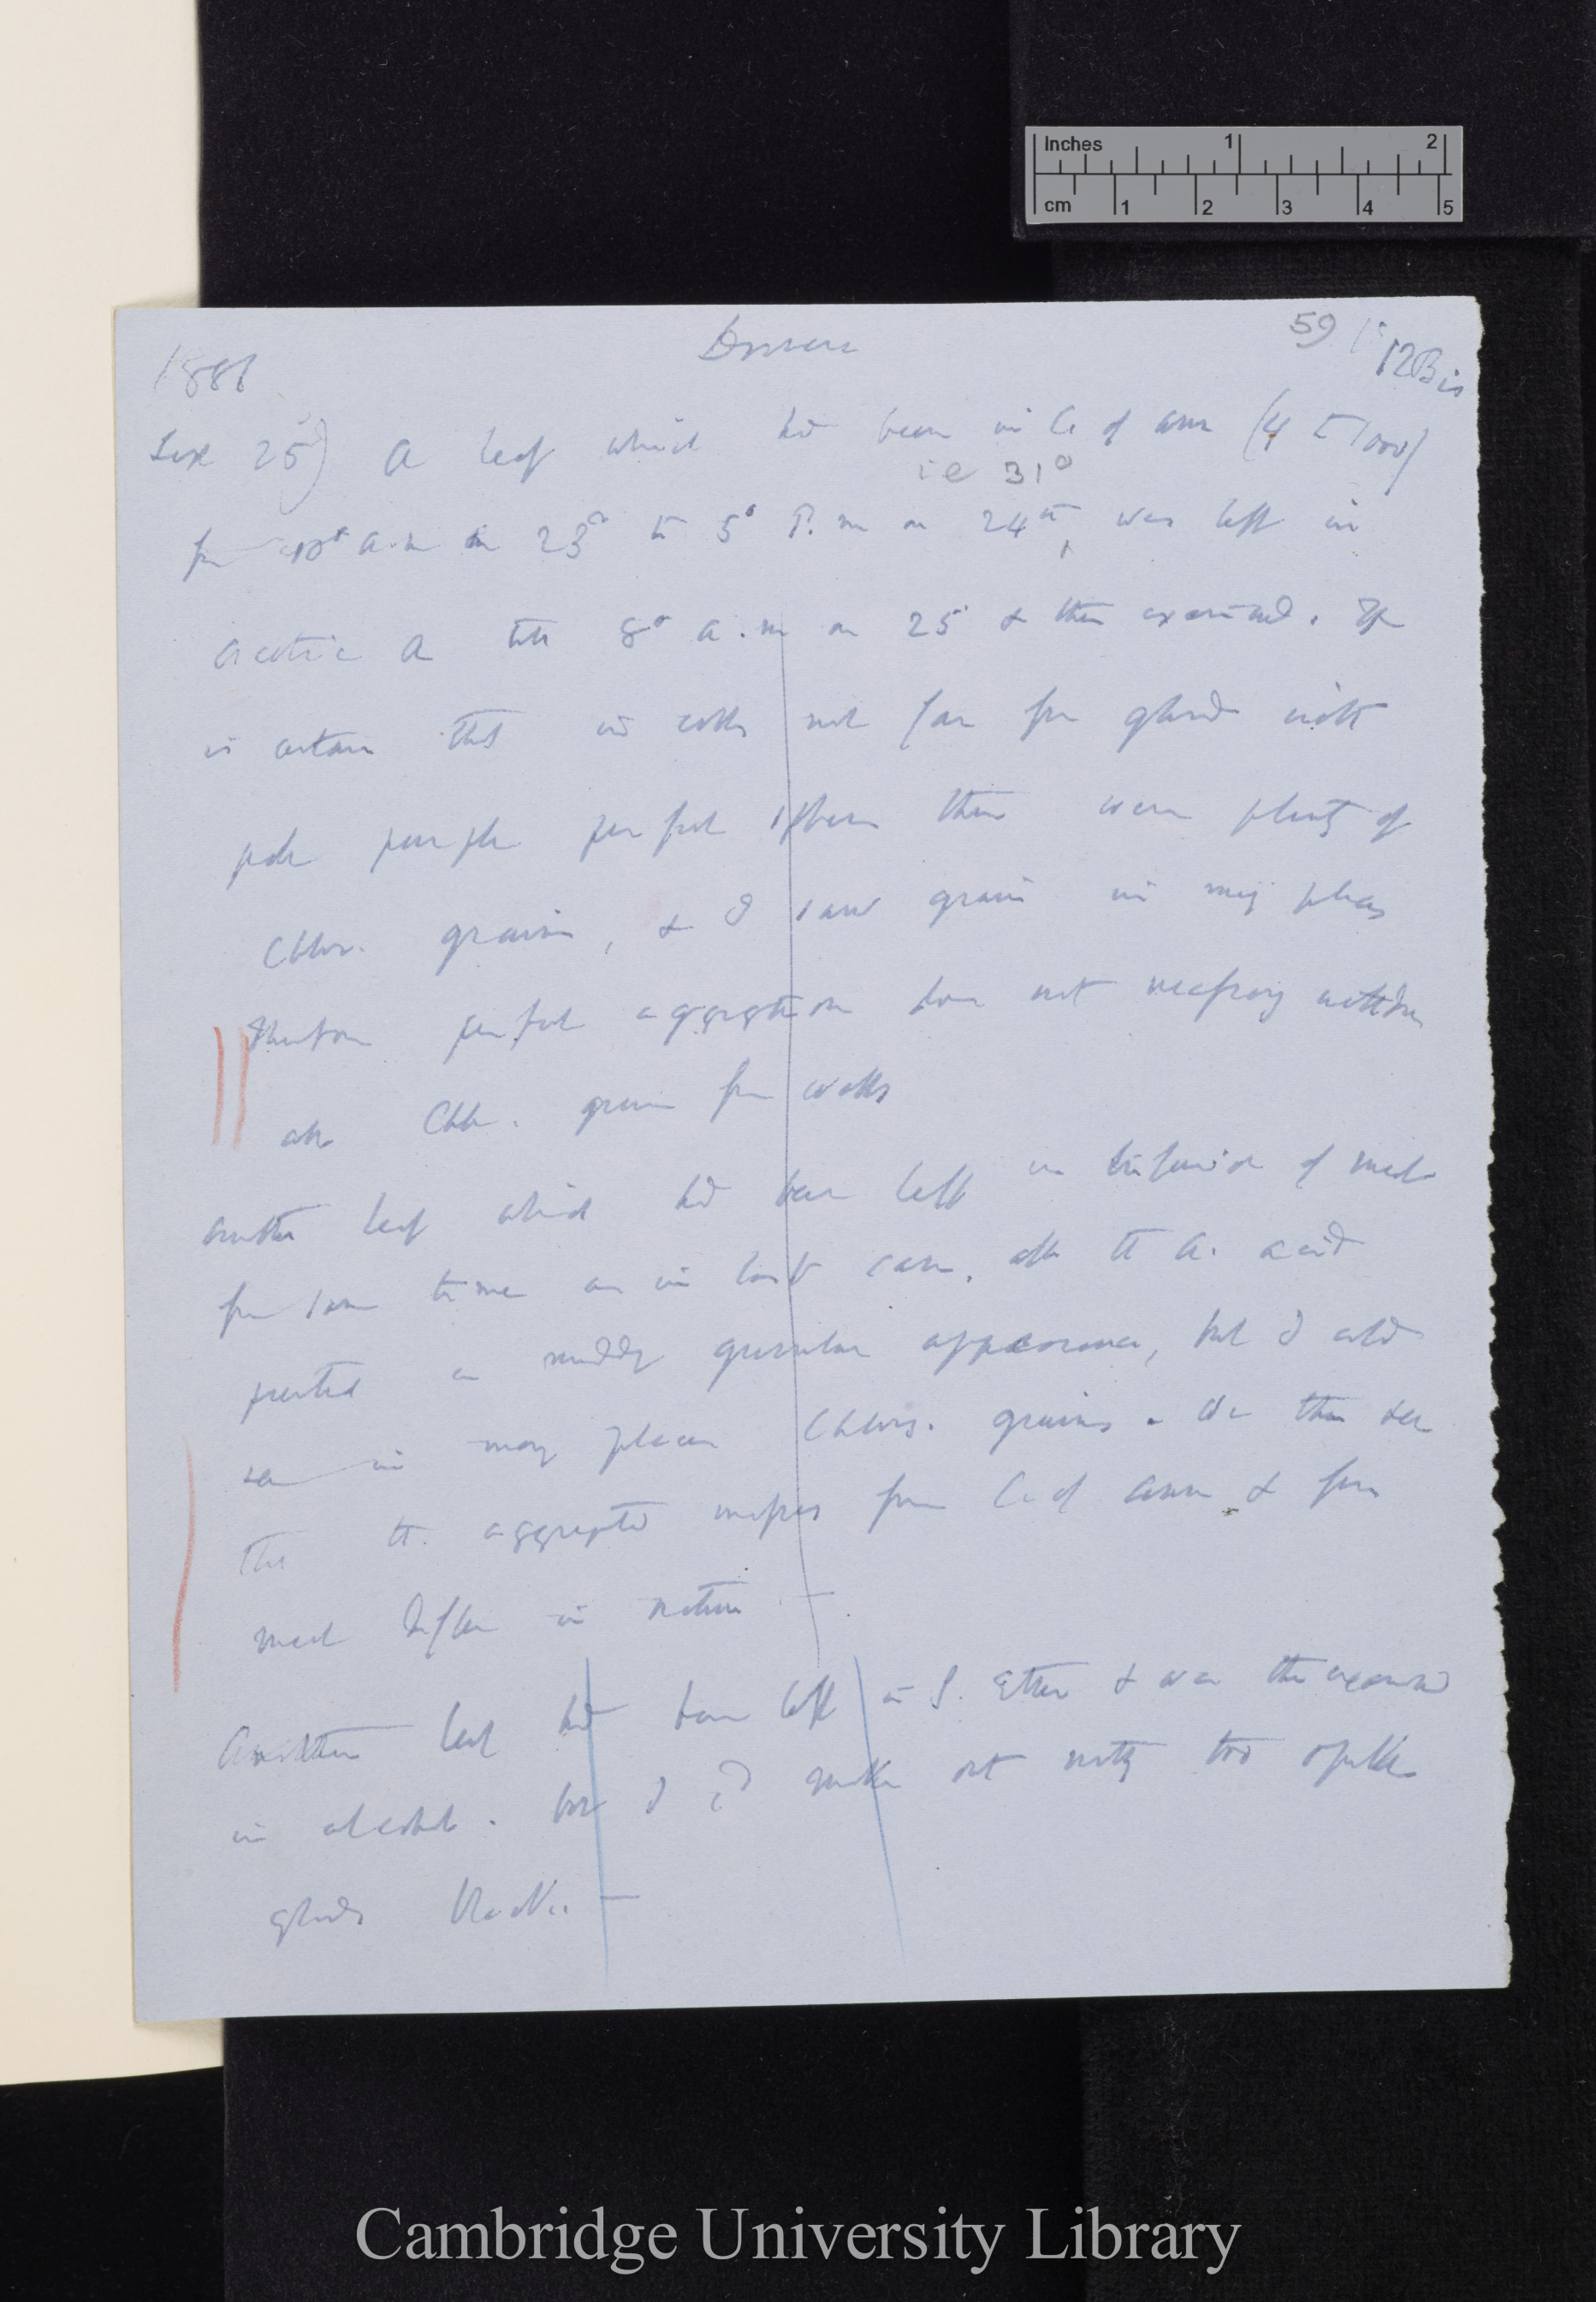 Inches 1 2
cm 1 2 3 4 5
59
12 Bis
1881 Drosera
Sept 25) A leaf which had been in C. of Amm (4 to 1000)
ie 31°
from 10° a.m on 23d to 5° P.m on 24th, was left in
acetic A till 8° a.m on 25 & then examined. It
is certain that in cells not far from glands with
pale purple perfect spheres there were plenty of
Chlor. grains, & I saw grains in many places
Therefore perfect aggregation does not necessarily withdraw
all Chlo. grains from walls
Another leaf which had been left in infusion of meat
for same time as in last case, after the A. acid
presented a muddy granular appearance, but I could
see in many places Chloro. grains. We thus see
that the aggregated masses from C. of Amm & from
meat differ in nature —
Another leaf had been left in S. Ether & was then examined
in alcohol. but I cd make out nothing too opake
glands blackish —
Cambridge University Library